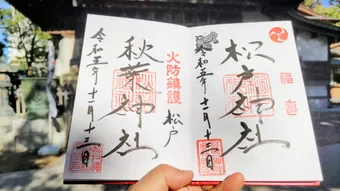 松戸神社
令和五年十一月十三日
火防鎮護
松戸
秋葉神社
令和五年十一月十三日